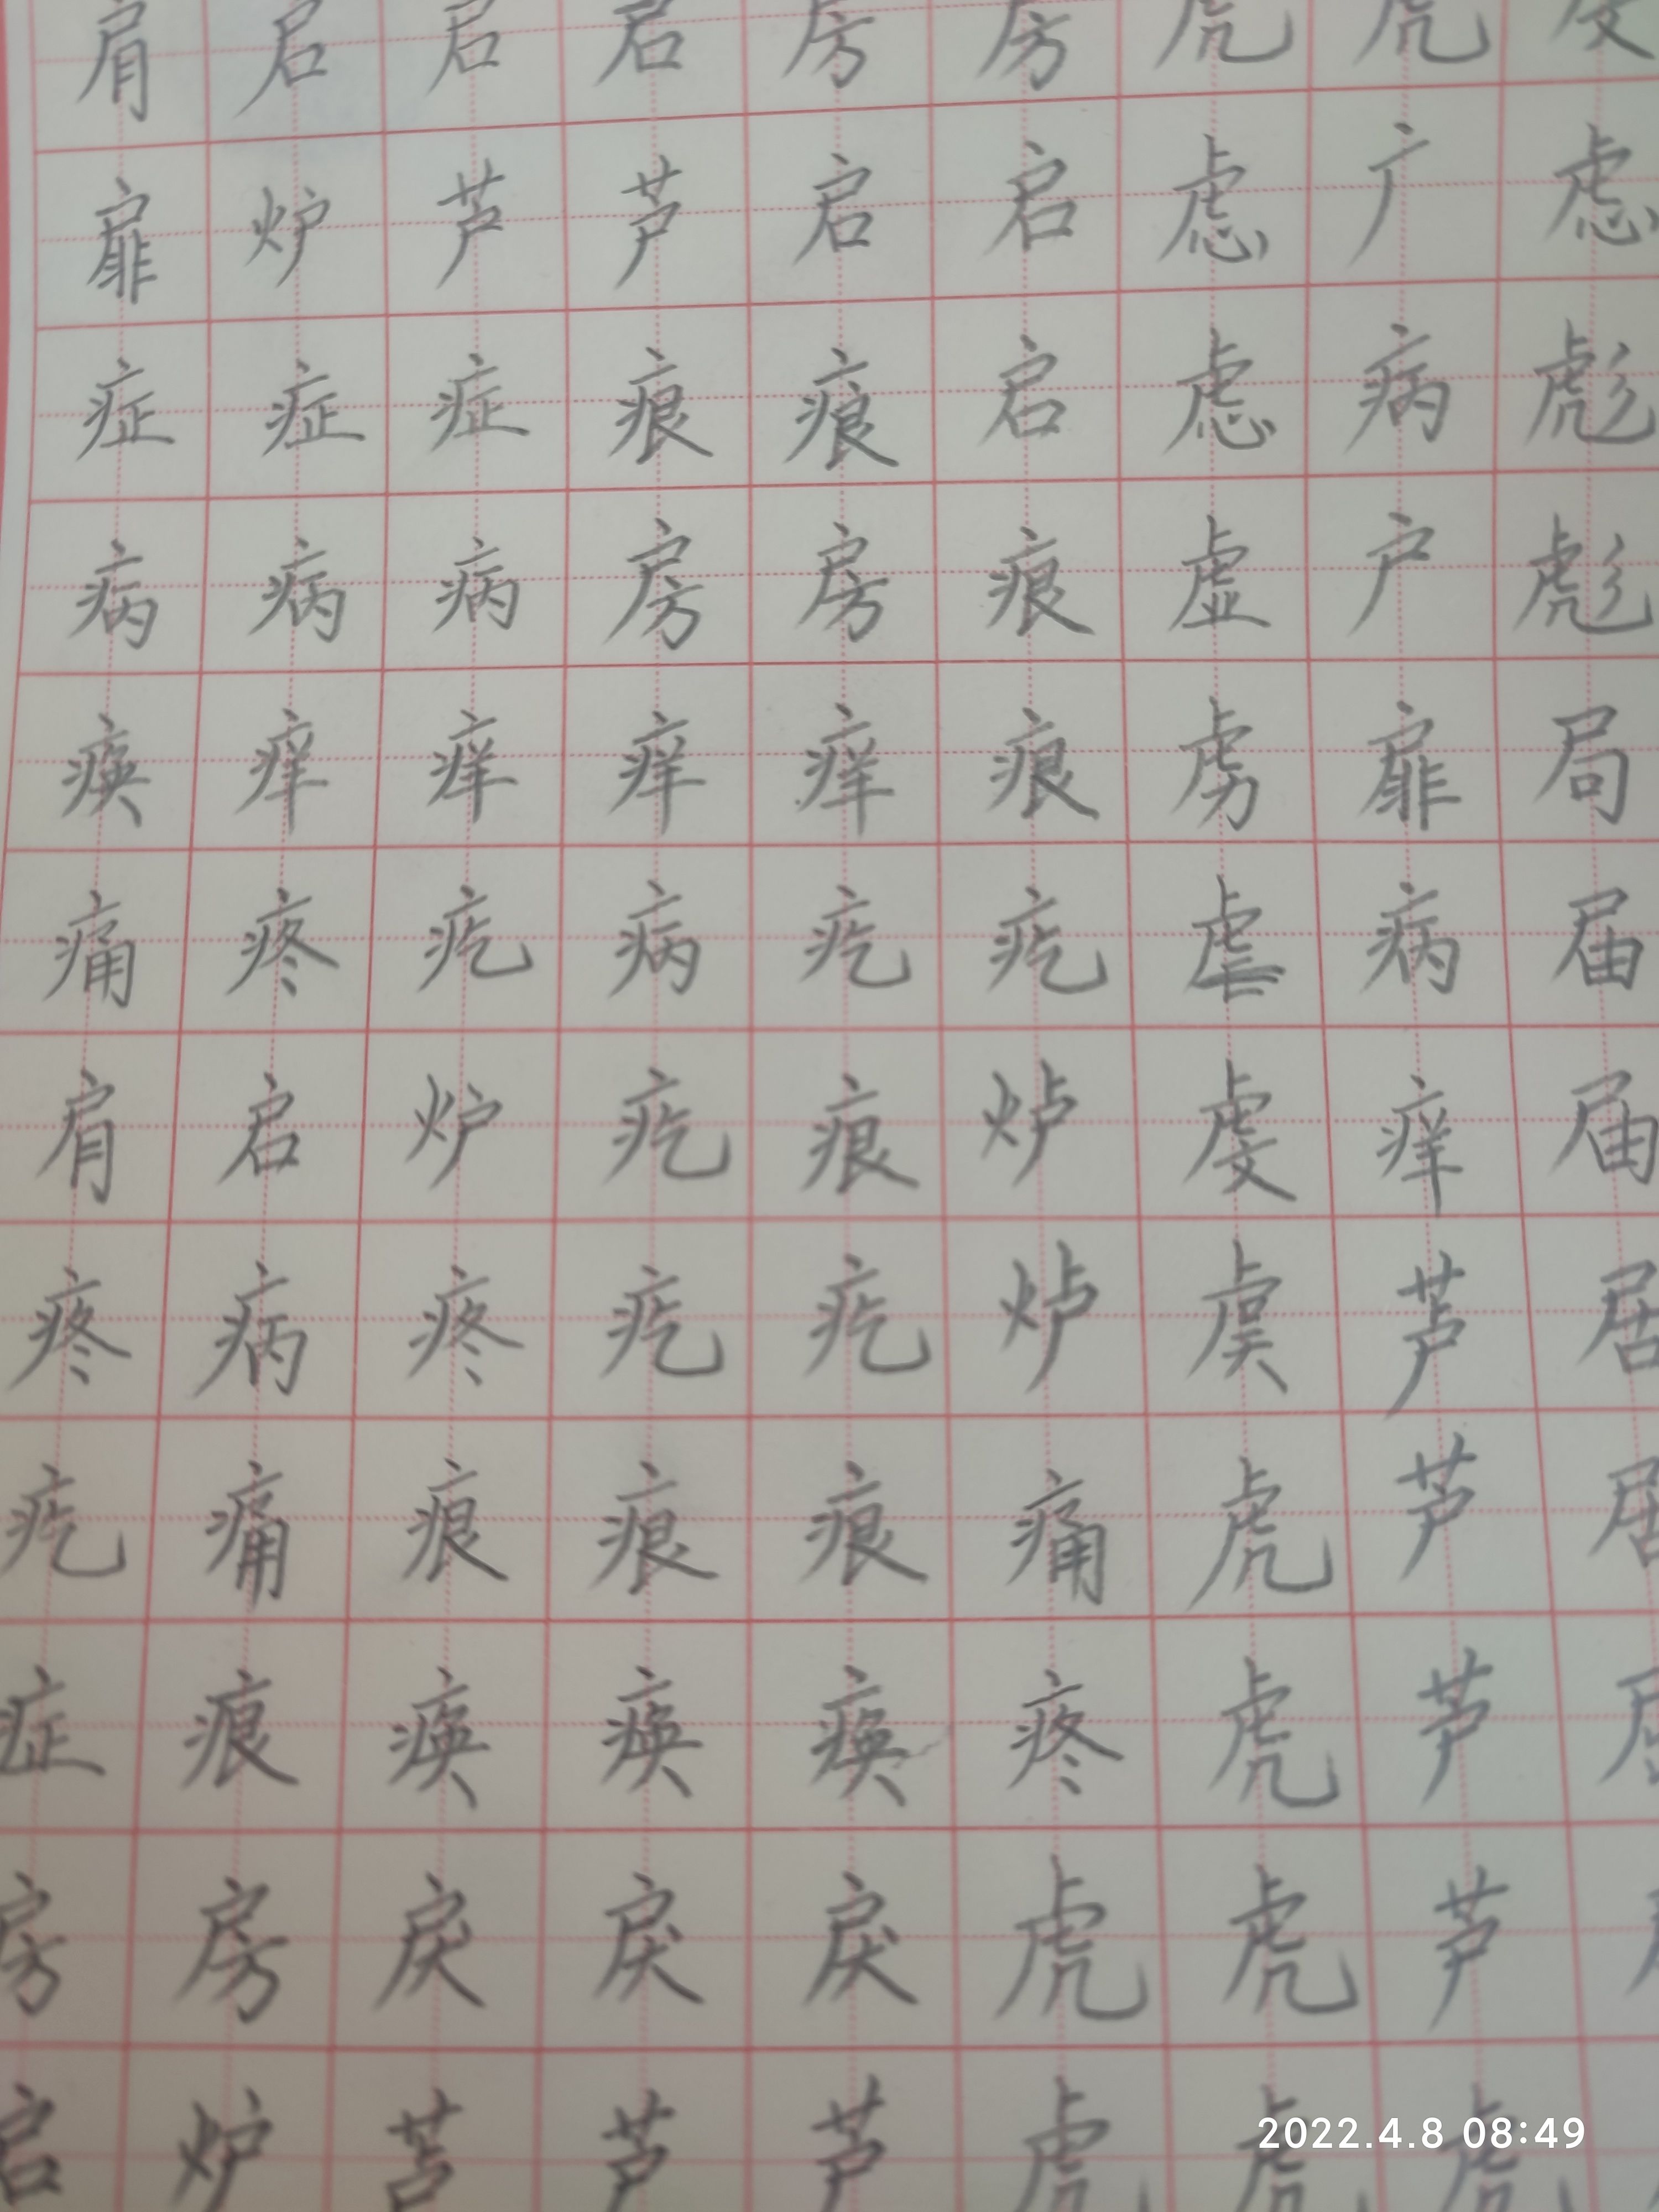 肩启启启房房虎虎虔
扉炉芦芦启启虑广虑
症症症痕痕启虑病彪
病病病房房痕虚户彪
痪痒痒痒痒痕虏扉局
痛疼疙病疙疙虐病届
肩启炉疙痕炉虔痒届
疼病疼疙疙炉虞芦居
疙痛痕痕痕痛虎芦居
症痕痪痪痪疼虎芦
房房戾戾戾虎虎芦
启炉芦芦虎虎虎
2022.4.8 08:49